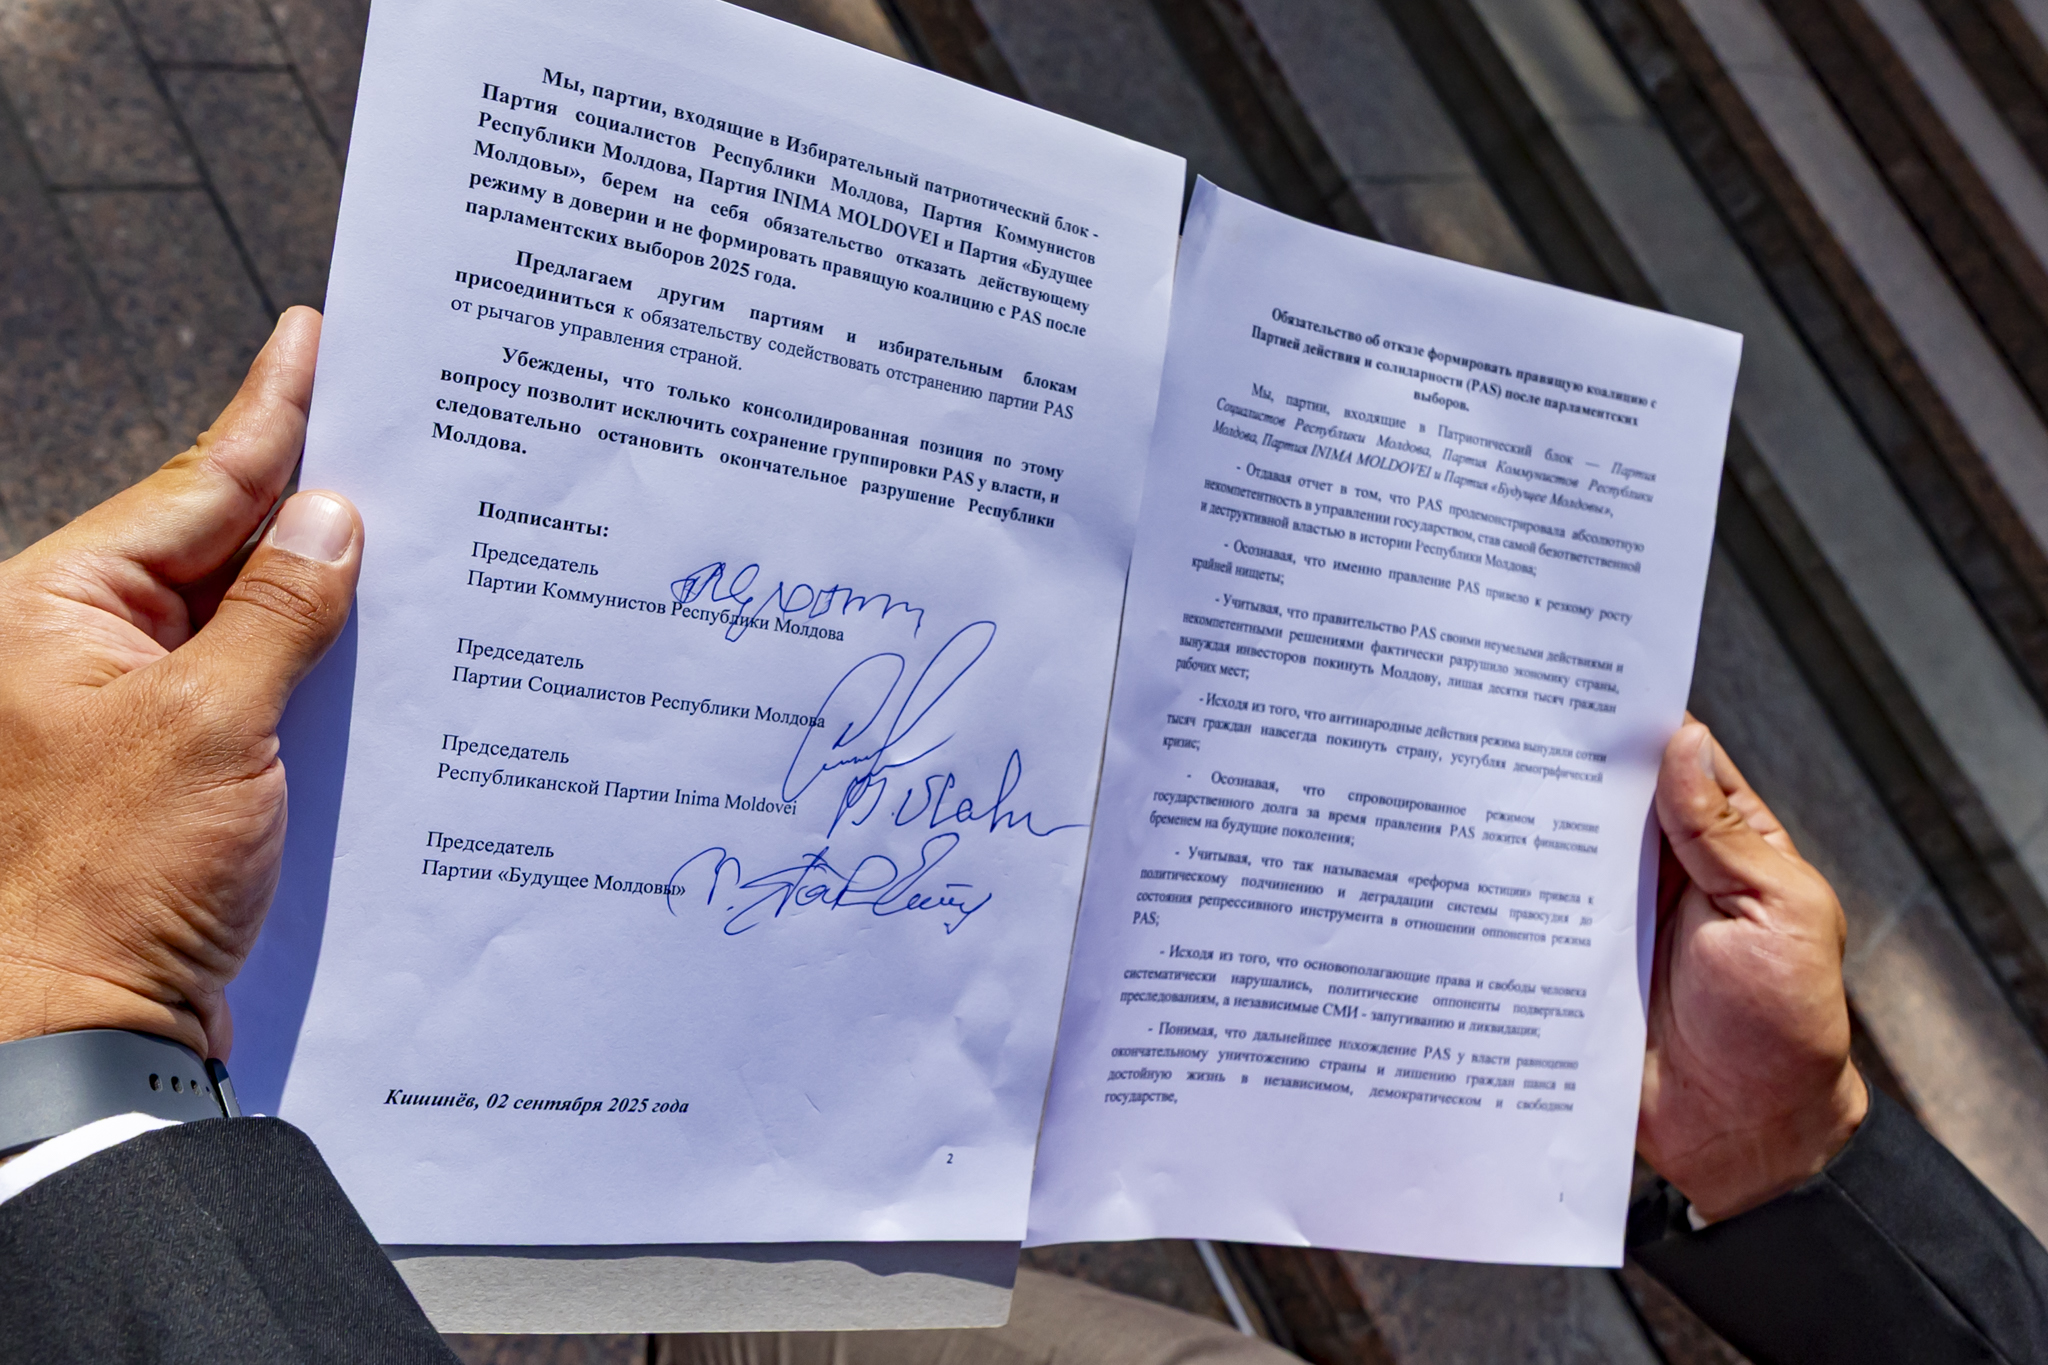 Мы, партии, входящие в Избирательный патриотический блок -
Партия социалистов Республики Молдова, Партия Коммунистов
Республики Молдова, Партия INIMA MOLDOVEI и Партия «Будущее
Молдовы», берем на себя обязательство отказать действующему
режиму в доверии и не формировать правящую коалицию с PAS после
парламентских выборов 2025 года.
Предлагаем другим партиям и избирательным блокам
присоединиться к обязательству содействовать отстранению партии PAS
от рычагов управления страной.
Убеждены, что только консолидированная позиция по этому
вопросу позволит исключить сохранение группировки PAS у власти, и
следовательно остановить окончательное разрушение Республики
Молдова.
Подписанты:
Председатель
Партии Коммунистов Республики Молдова
Председатель
Партии Социалистов Республики Молдова
Председатель
Республиканской Партии Inima Moldovei
Председатель
Партии «Будущее Молдовы»
Кишинёв, 02 сентября 2025 года
2
Обязательство об отказе формировать правящую коалицию с
Партией действия и солидарности (PAS) после парламентских
выборов.
Мы, партии, входящие в Патриотический блок — Партия
Социалистов Республики Молдова, Партия Коммунистов Республики
Молдова, Партия INIMA MOLDOVEI и Партия «Будущее Молдовы»,
- Отдавая отчет в том, что PAS продемонстрировала абсолютную
некомпетентность в управлении государством, став самой безответственной
и деструктивной властью в истории Республики Молдова;
- Осознавая, что именно правление PAS привело к резкому росту
крайней нищеты;
- Учитывая, что правительство PAS своими неумелыми действиями и
некомпетентными решениями фактически разрушило экономику страны,
вынуждая инвесторов покинуть Молдову, лишая десятки тысяч граждан
рабочих мест;
- Исходя из того, что антинародные действия режима вынудили сотни
тысяч граждан навсегда покинуть страну, усугубляя демографический
кризис;
- Осознавая, что спровоцированное режимом удвоение
государственного долга за время правления PAS ложится финансовым
бременем на будущие поколения;
- Учитывая, что так называемая «реформа юстиции» привела к
политическому подчинению и деградации системы правосудия до
состояния репрессивного инструмента в отношении оппонентов режима
PAS;
- Исходя из того, что основополагающие права и свободы человека
систематически нарушались, политические оппоненты подвергались
преследованиям, а независимые СМИ - запугиванию и ликвидации;
- Понимая, что дальнейшее нахождение PAS у власти равноценно
окончательному уничтожению страны и лишению граждан шанса на
достойную жизнь в независимом, демократическом и свободном
государстве,
1